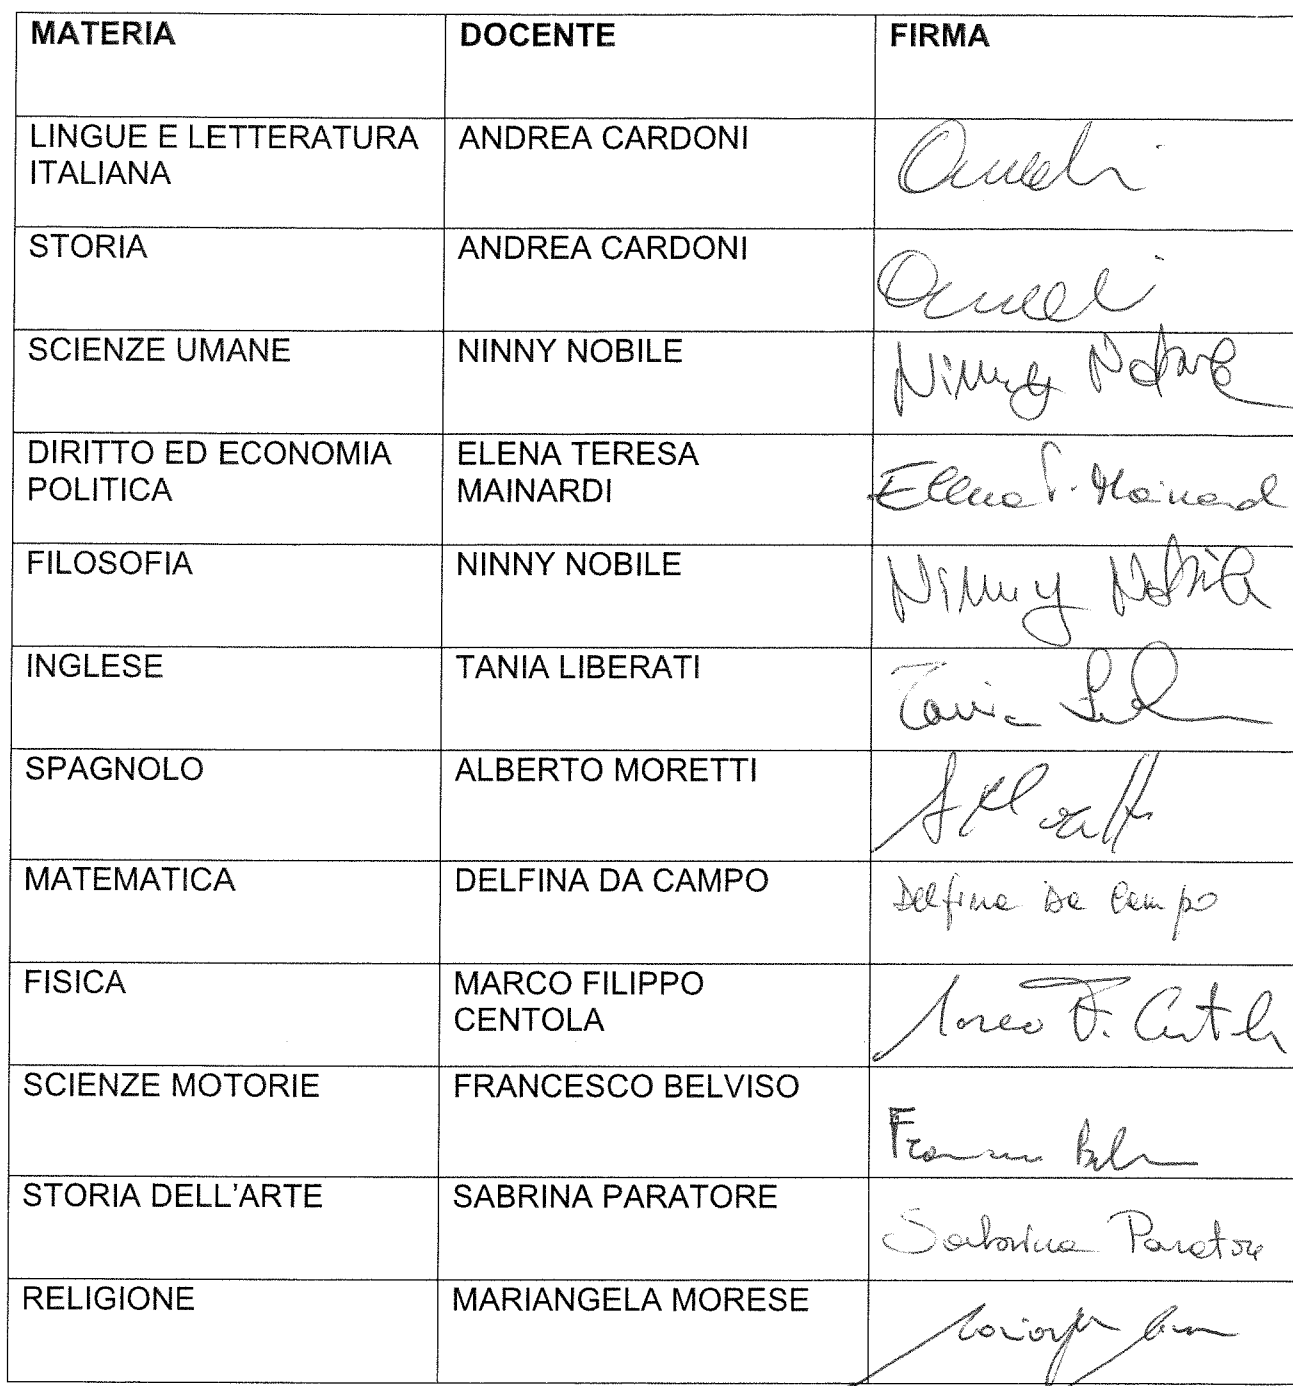 MATERIA DOCENTE FIRMA
LINGUE E LETTERATURA ANDREA CARDONI
ITALIANA
STORIA ANDREA CARDONI
SCIENZE UMANE NINNY NOBILE Ninny Nobile
DIRITTO ED ECONOMIA ELENA TERESA Elena T. Mainardi
POLITICA MAINARDI
FILOSOFIA NINNY NOBILE Ninny Nobile
INGLESE TANIA LIBERATI Tania
SPAGNOLO ALBERTO MORETTI
MATEMATICA DELFINA DA CAMPO Delfina Da Campo
FISICA MARCO FILIPPO Marco F. Centola
CENTOLA
SCIENZE MOTORIE FRANCESCO BELVISO
STORIA DELL'ARTE SABRINA PARATORE Sabrina Paratore
RELIGIONE MARIANGELA MORESE